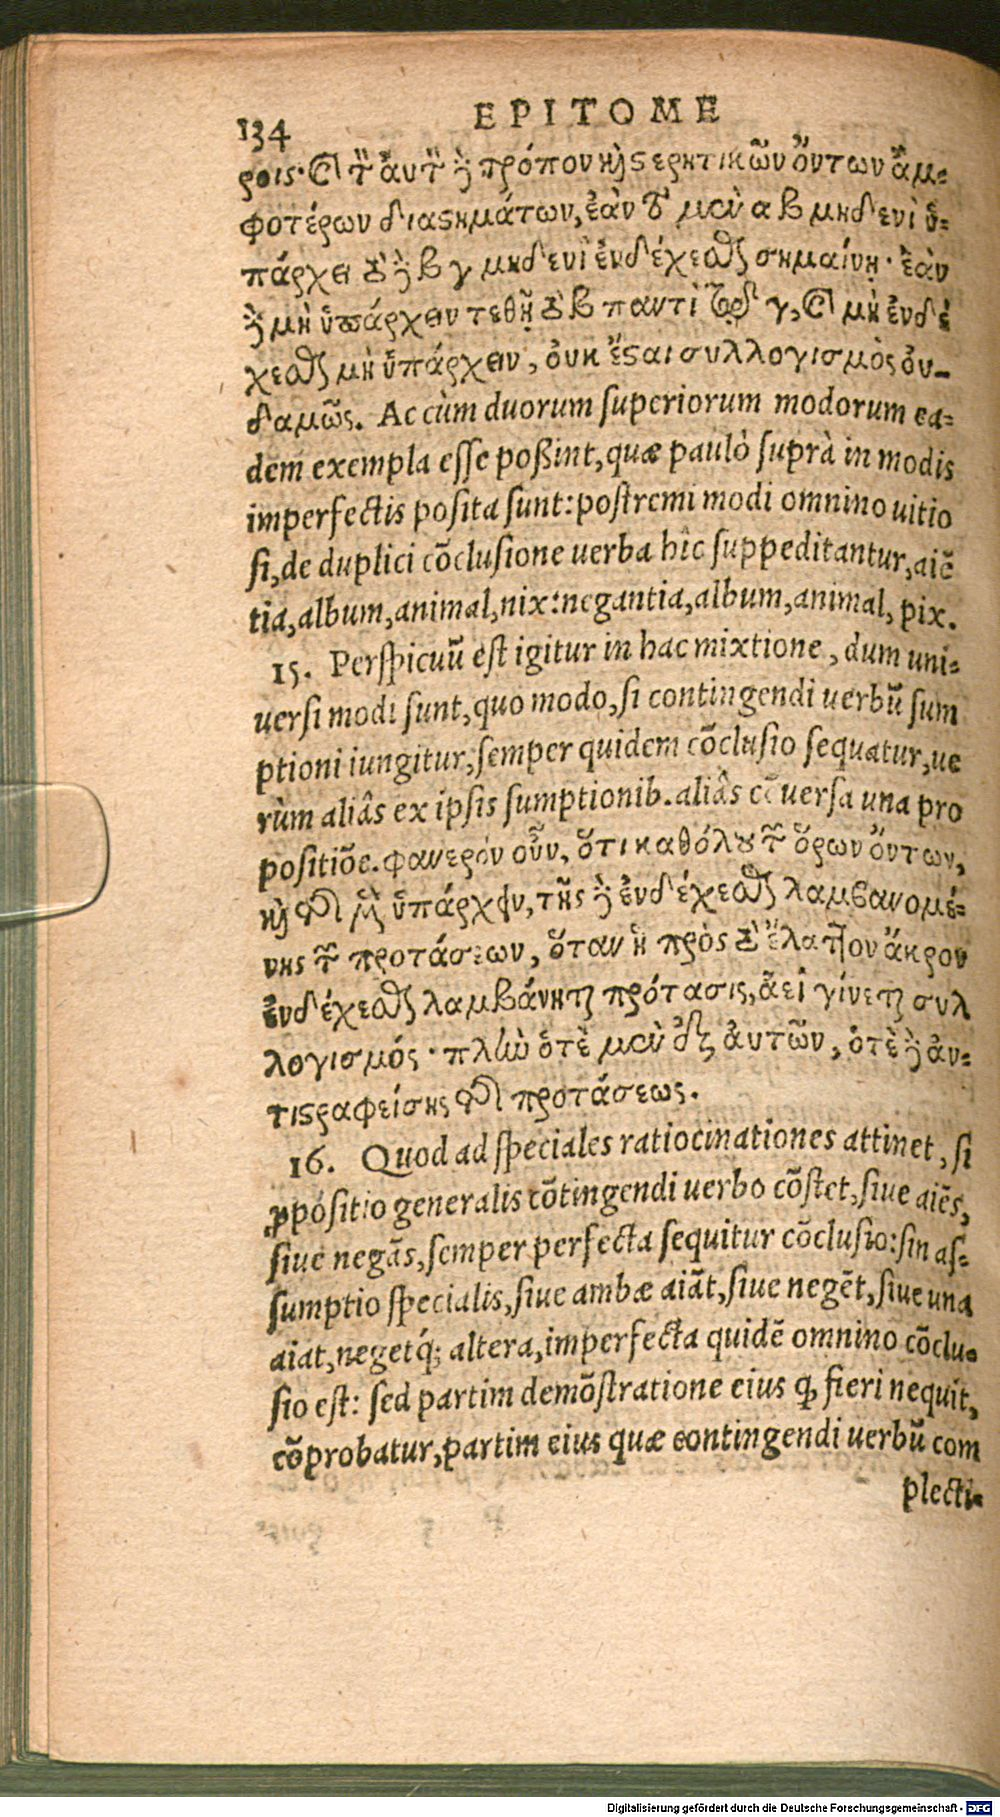 134 EPITOME
ροις· καὶ τὸν αὐτὸν δὲ τρόπον καὶ στερητικῶν ὄντων ἀμ-
φοτέρων διαστημάτων, ἐὰν τὸ μὲν α β μηδενὶ ὑ-
πάρχειν τὸ δὲ β γ μηδενὶ ἐνδέχεσθαι σημαίνῃ· ἐὰν
δὲ μὴ ὑπάρχειν τεθῇ τὸ β παντὶ τῷ γ, καὶ μὴ ἐνδέ
χεσθαι μὴ ὑπάρχειν, οὐκ ἔσται συλλογισμὸς οὐ-
δαμῶς. Ac cùm duorum superiorum modorum ea-
dem exempla esse poßint, quæ paulò suprà in modis
imperfectis posita sunt: postremi modi omnino uitio
si, de duplici cōclusione uerba hîc suppeditantur, aiē
tia, album, animal, nix: negantia, album, animal, pix.
15. Perspicuū est igitur in hac mixtione, dum uni-
uersi modi sunt, quo modo, si contingendi uerbū sum
ptioni iungitur, semper quidem cōclusio sequatur, ue
rùm aliâs ex ipsis sumptionib. aliâs cōuersa una pro
positiōe. φανερὸν οὖν, ὅτι καθόλου τῶν ὅρων ὄντων,
καὶ τῆς μὲν ὑπάρχειν, τῆς δὲ ἐνδέχεσθαι λαμβανομέ-
νης τῶν προτάσεων, ὅταν ἡ πρὸς τὸ ἔλαττον ἄκρον
ἐνδέχεσθαι λαμβάνηται πρότασις, ἀεὶ γίνεται συλ
λογισμός· πλὴν ὁτὲ μὲν ἐξ αὐτῶν, ὁτὲ δὲ ἀν-
τιστραφείσης τῆς προτάσεως.
16. Quod ad speciales ratiocinationes attinet, si
ꝓpositio generalis cōtingendi uerbo cōstet, siue aiēs,
siue negās, semper perfecta sequitur cōclusio: sin as-
sumptio specialis, siue ambæ aiāt, siue negēt, siue una
aiat, negetq́; altera, imperfecta quidē omnino cōclu-
sio est: sed partim demōstratione eius q̨ fieri nequit,
cōprobatur, partim eius quæ contingendi uerbū com
plecti-
Digitalisierung gefördert durch die Deutsche Forschungsgemeinschaft - DFG